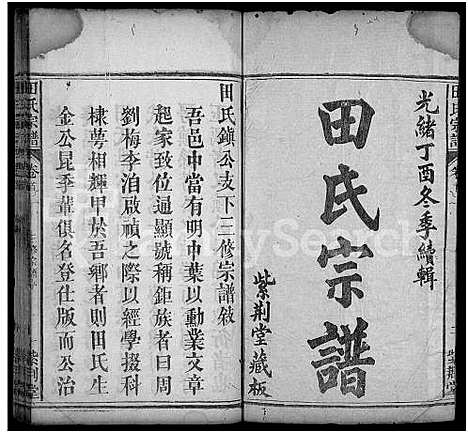 光緒丁酉冬季續輯
田氏宗譜
紫荆堂藏板
田氏鎮公支下三修宗譜敘
吾邑中當有明中葉以勳業文章
起家致位通顯號稱鉅族者曰周
劉梅李洎啟禎之際以經學掇科
棣萼相輝甲於吾鄉者則田氏生
金公昆季輩俱名登仕版而公治
田氏宗譜
紫荆堂